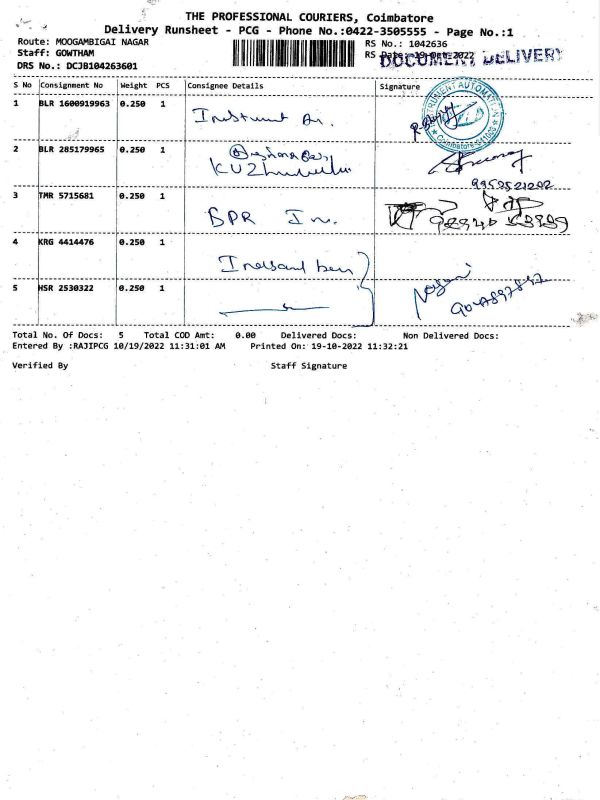 THE PROFESSIONAL COURIERS, Coimbatore
Delivery Runsheet - PCG - Phone No.:0422-3505555 - Page No.:1
Route: MOOGAMBIGAI NAGAR
Staff: GOWTHAM
DRS No.: DCJB104263601
RS No.: 1042636
RS Date: 19-Oct-2022
DOCUMENT DELIVERY
S No Consignment No Weight PCS Consignee Details Signature
1 BLR 1600919963 0.250 1
2 BLR 285179965 0.250 1
3 TMR 5715681 0.250 1 BPR Inv.
4 KRG 4414476 0.250 1
5 HSR 2530322 0.250 1
Total No. Of Docs: 5 Total COD Amt: 0.00 Delivered Docs: Non Delivered Docs:
Entered By :RAJIPCG 10/19/2022 11:31:01 AM Printed On: 19-10-2022 11:32:21
Verified By Staff Signature